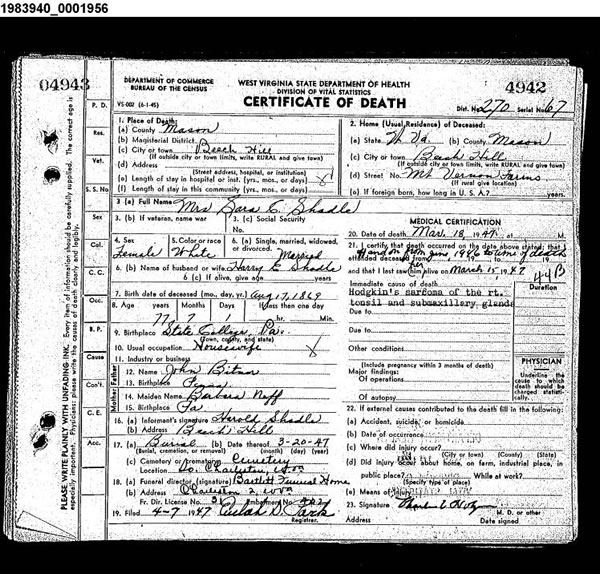 1983940_0001956
04943
DEPARTMENT OF COMMERCE
BUREAU OF THE CENSUS
WEST VIRGINIA STATE DEPARTMENT OF HEALTH
DIVISION OF VITAL STATISTICS
4942
VS-002 (6-1-45)
CERTIFICATE OF DEATH
Dist. No. 270 Serial No. 67
1. Place of Death:
(a) County Mason
(b) Magisterial District
(c) City or town Beech Hill
(If outside city or town limits, write RURAL and give town)
(d) Address
(Street address, hospital, or institution)
(e) Length of stay in hospital or inst. (yrs., mos., or days)
(f) Length of stay in this community (yrs., mos., or days)
2. Home (Usual Residence) of Deceased:
(a) State W Va. (b) County Mason
(c) City or town Beech Hill
(If outside city or town limits, write RURAL and give town)
(d) Street No. Mt Vernon Farms
(If rural give location)
(e) If foreign born, how long in U. S. A.? years
3 (a) Full Name Mrs Sara E. Shadle
3. (b) If veteran, name war
3. (c) Social Security No.
4. Sex Female
5. Color or race White
6. (a) Single, married, widowed, or divorced. Married
6. (b) Name of husband or wife Harry E Shadle
6 (c) If alive, give age years
7. Birth date of deceased (mo., day, yr.) Aug 17, 1869
8. Age years months days If less than one day
77 7 1 hr. Min.
9. Birthplace State College, Pa.
(Town, county, and state)
10. Usual occupation Housewife
11. Industry or business
Father
12. Name John Bitner
13. Birthplace
Mother
14. Maiden Name Barbara Neff
15. Birthplace Pa
16. (a) Informant's signature Harold Shadle
(b) Address Beech Hill
17. (a) Burial (b) Date thereof 3-20-47
(Burial, cremation, or removal) (month) (day) (year)
(c) Cemetery or crematory Cemetery
Location So. Charleston, W.Va.
18. (a) Funeral director (signature) Bartlett Funeral Home
(b) Address Charleston 2, W.Va.
Fr. Dir. License No. Embalmer No.
19. Filed 4-7 1947 Beulah D. Park
Registrar.
MEDICAL CERTIFICATION
20. Date of death Mar. 18, 1947, at M.
21. I certify that death occurred on the date above stated; that I attended deceased from off and on from June 1946 to time of death
and that I last saw her alive on March 15, 1947
44B
Immediate cause of death
Duration
Hodgkin's sarcoma of the rt.
tonsil and submaxillary glands
Due to
Due to
Other conditions
(Include pregnancy within 3 months of death)
Major findings:
Of operations
Of autopsy
PHYSICIAN
Underline the cause to which death should be charged statistically.
22. If external causes contributed to the death fill in the following:
(a) Accident, suicide, or homicide
(b) Date of occurrence
(c) Where did injury occur?
(City or town) (County) (State)
(d) Did injury occur about home, on farm, industrial place, in
public place? While at work?
(Specify type of place)
(e) Means of injury
23. Signature
M. D. or other
Address Date signed
P. D.
Res.
Vet.
S. S. No
Sex
Col.
C. C.
Age
Occ.
B. P.
Cause
Con't.
C. E.
Acc.
PLEASE WRITE PLAINLY WITH UNFADING INK. Every item of information should be carefully supplied. The correct age is
especially important. Physicians: please write the causes of death clearly and legibly.